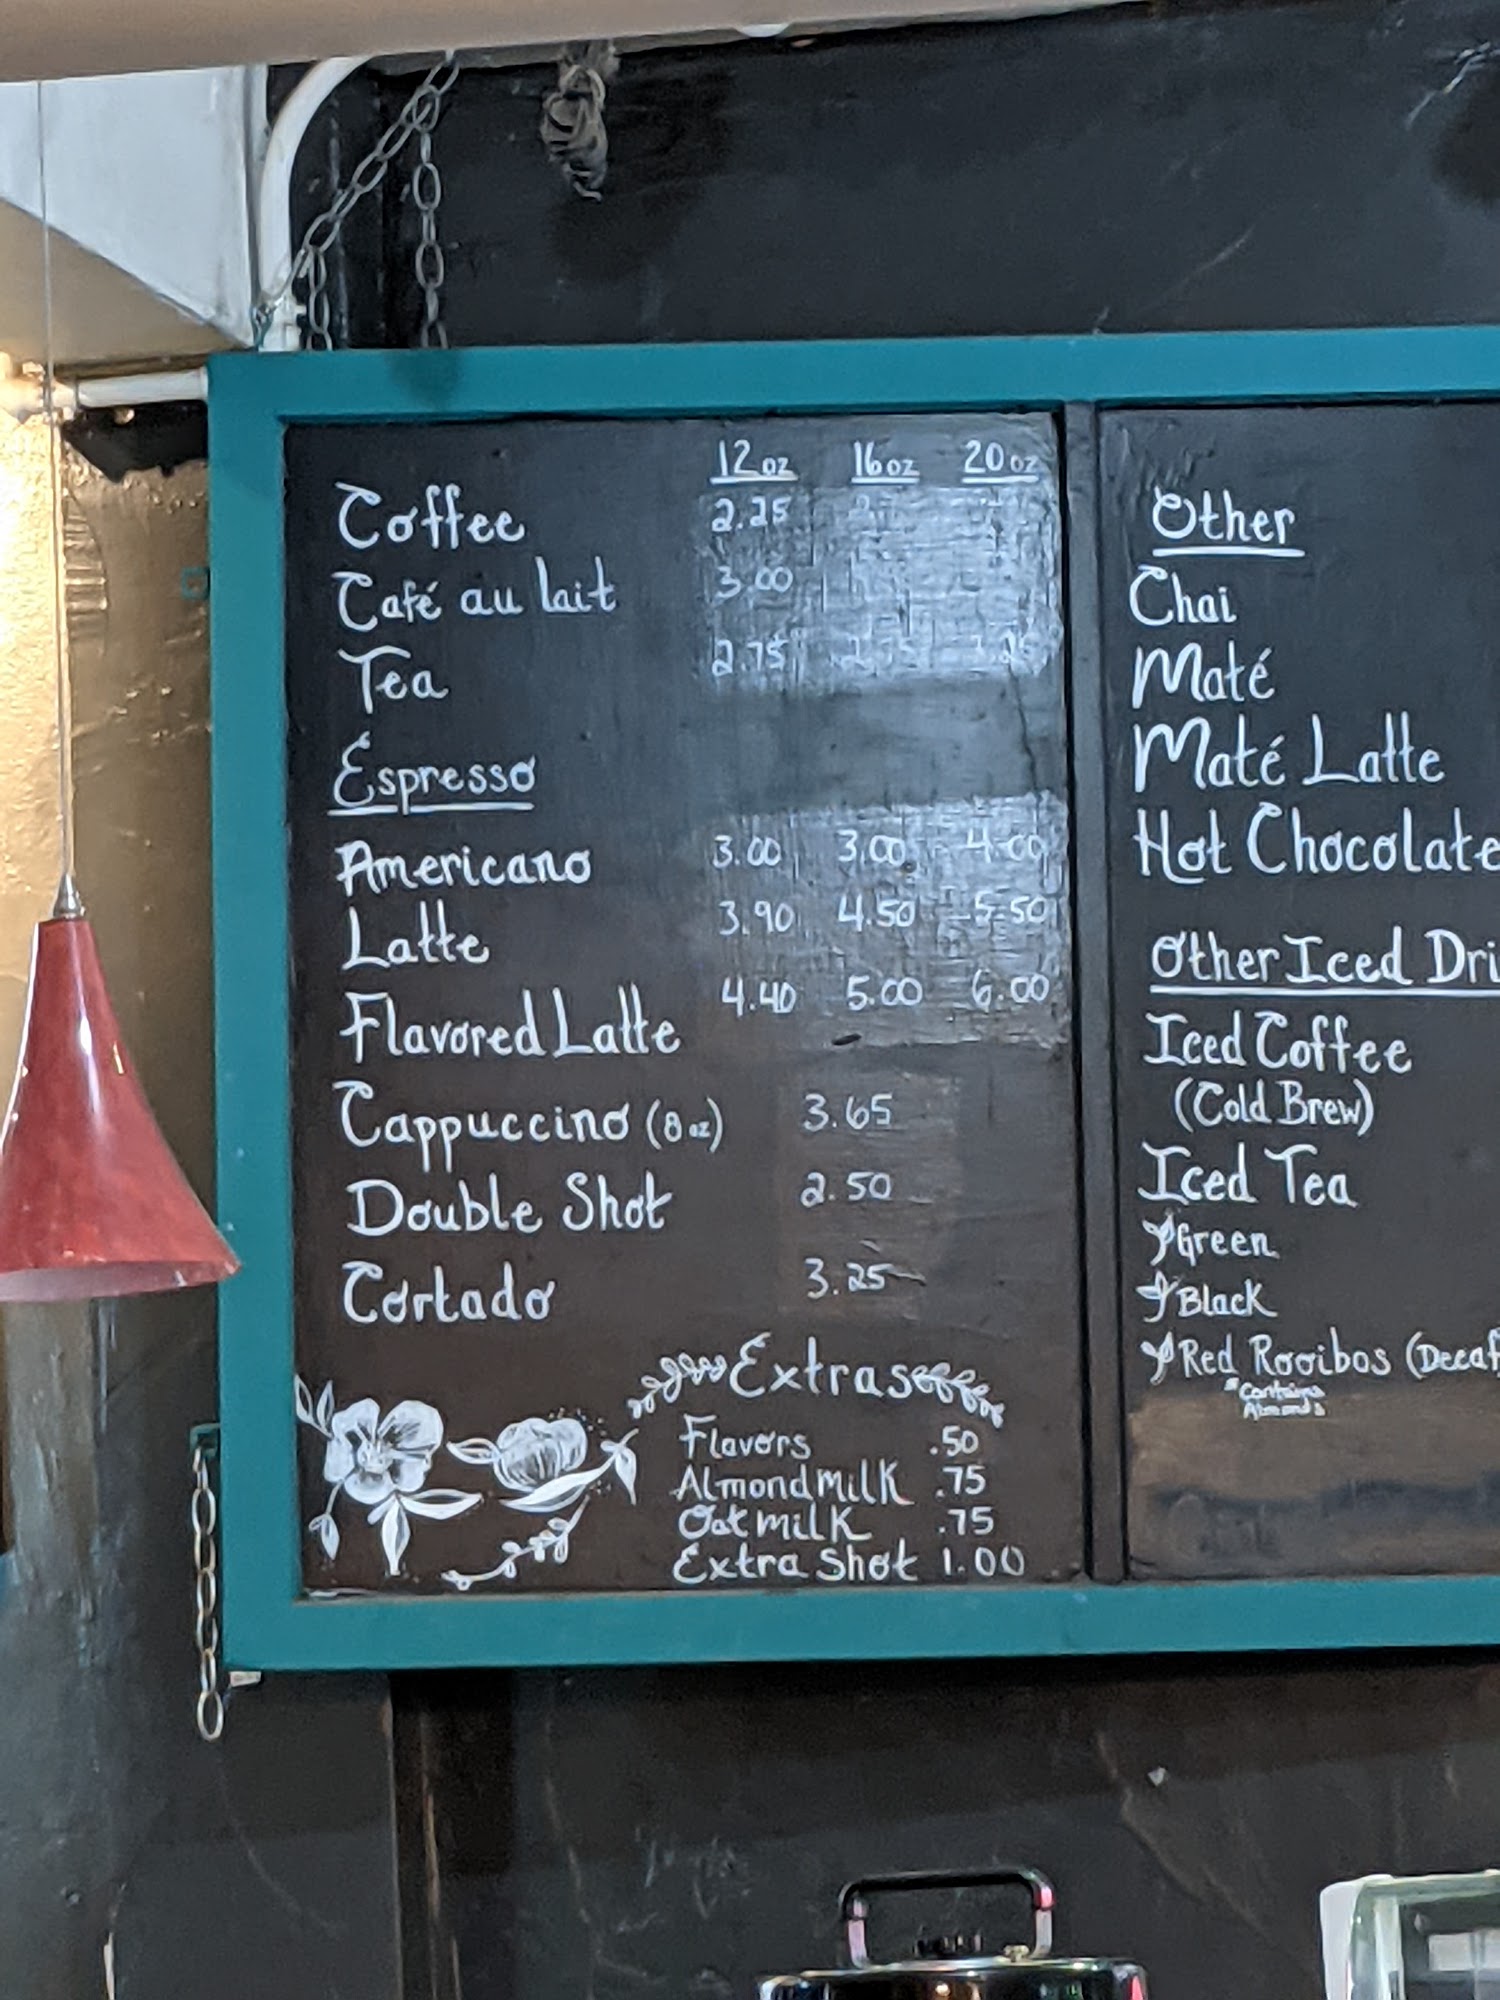 12 oz 16 oz 20 oz
Coffee 2.25
Café au lait 3.00
Tea 2.75
Espresso
Americano 3.00 3.00 4.00
Latte 3.90 4.50 5.50
Flavored Latte 4.40 5.00 6.00
Cappuccino (8 oz) 3.65
Double Shot 2.50
Cortado 3.25
Extras
Flavors .50
Almond milk .75
Oat milk .75
Extra Shot 1.00
Other
Chai
Maté
Maté Latte
Hot Chocolate
Other Iced Dri
Iced Coffee
(Cold Brew)
Iced Tea
Green
Black
Red Rooibos (Decaf
*Contains
Almonds